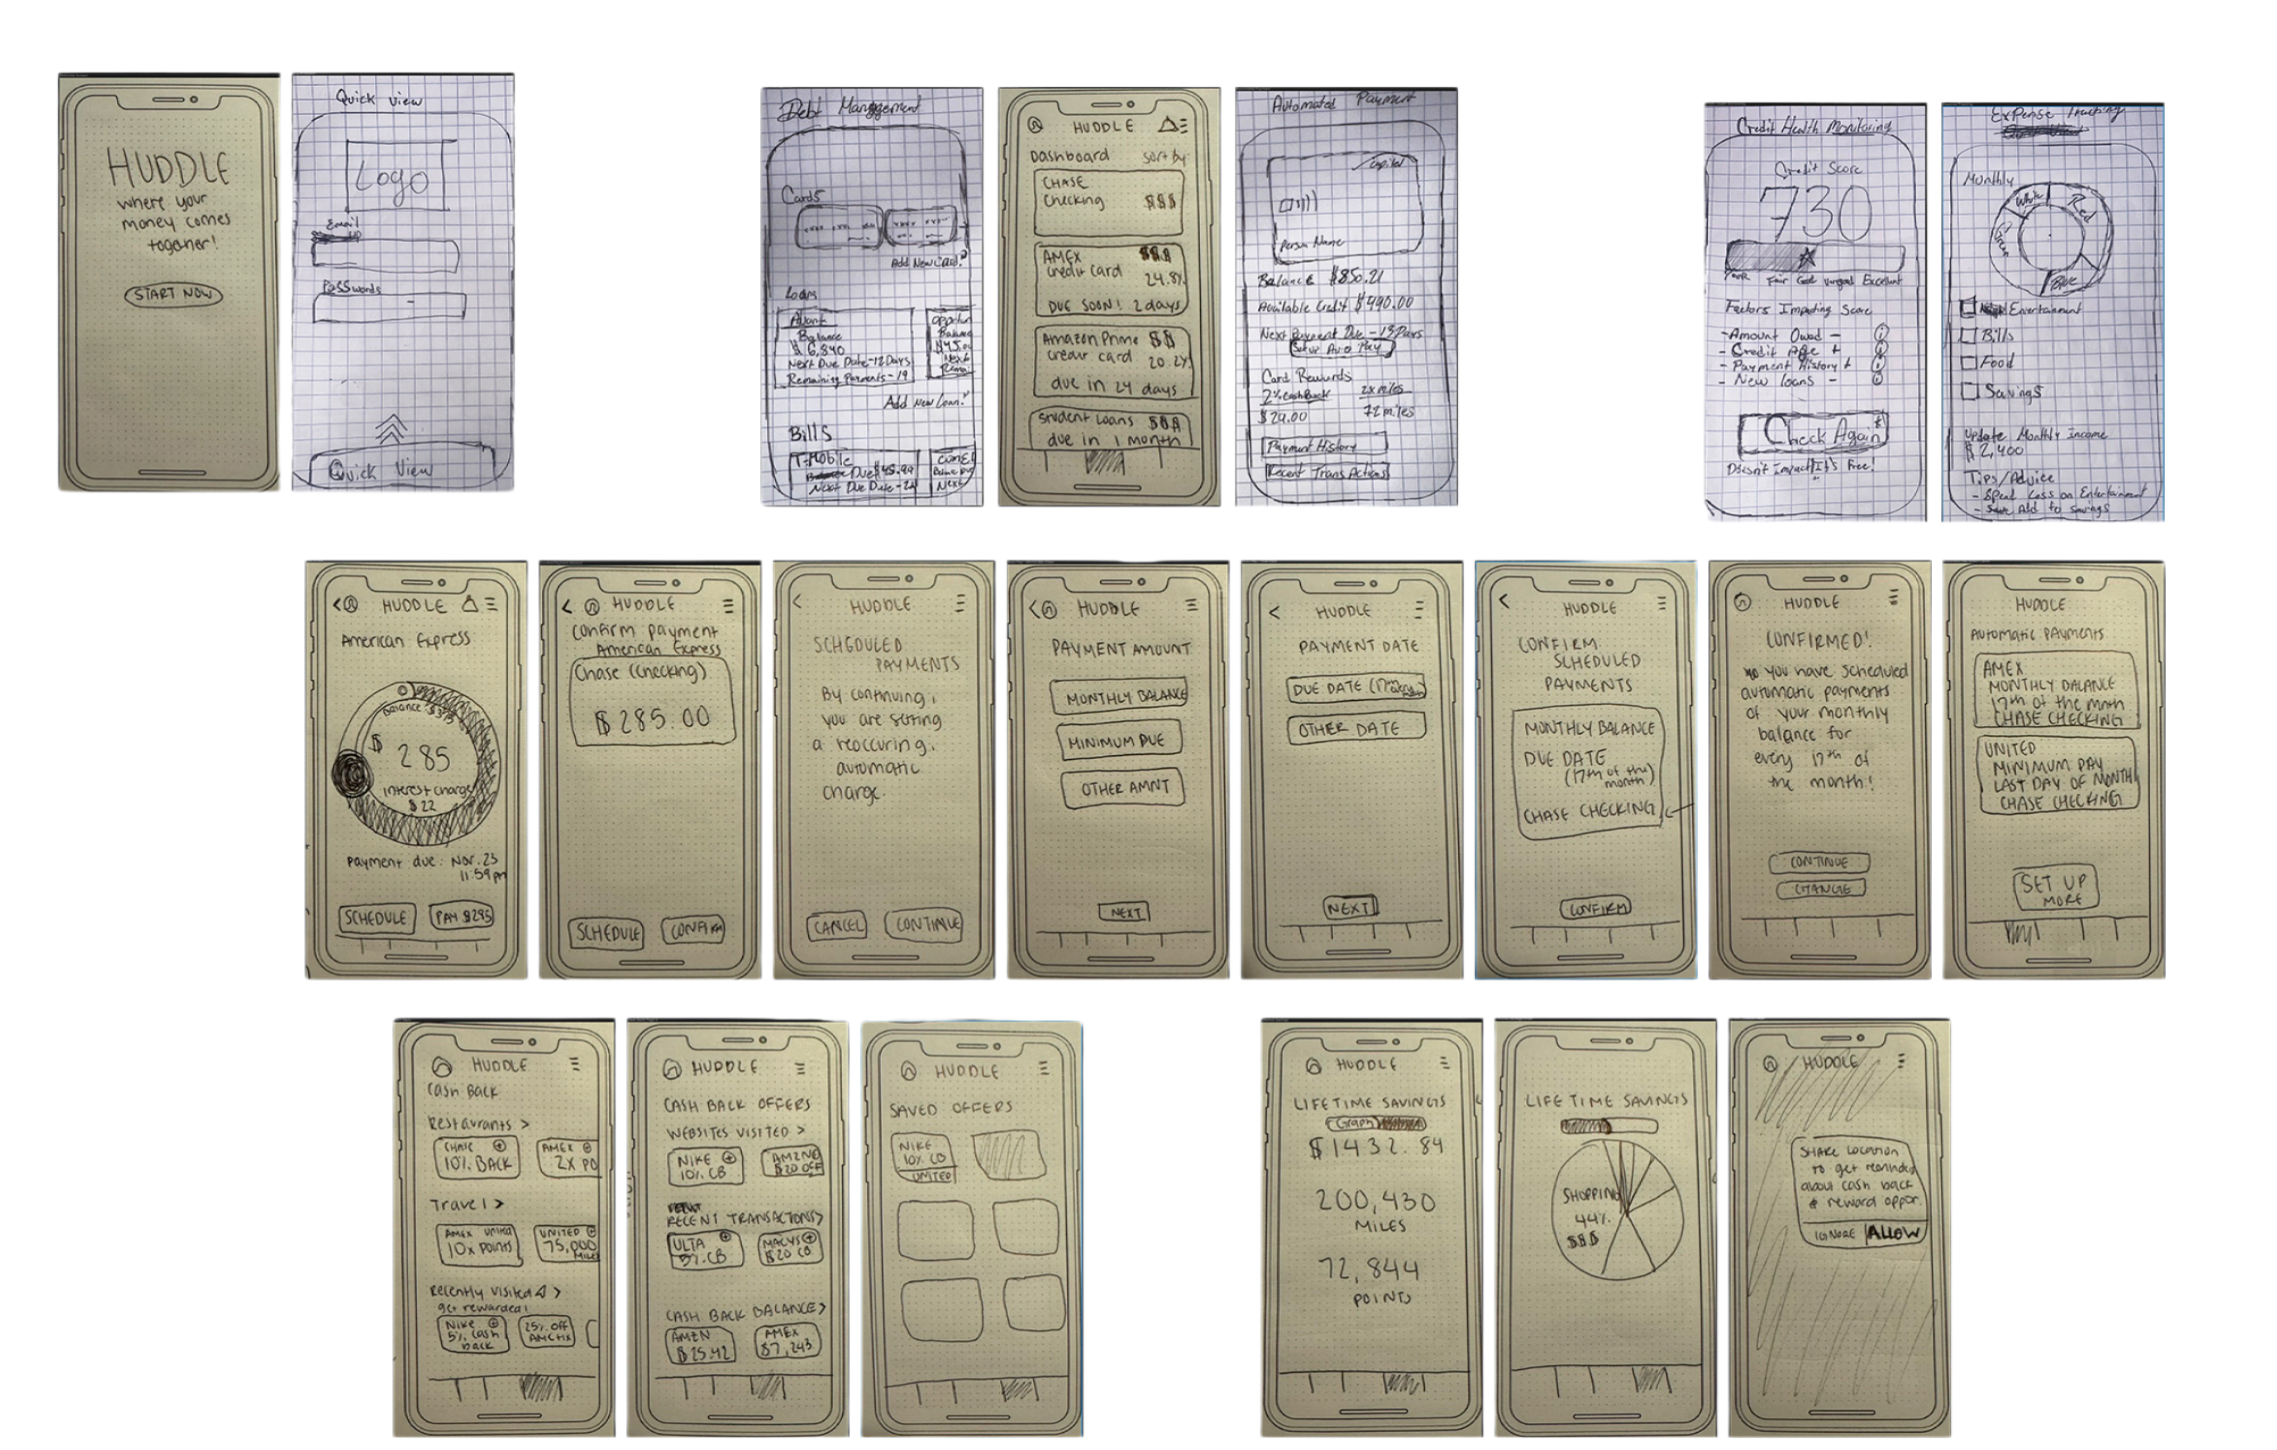 HUDDLE
where your
money comes
together!
START NOW
Quick View
Logo
Email
Passwords
Quick View
Debt Management
Cards
Add New Card?
Loans
Avant
Balance
$ 6,840
Next Due Date-12 Days
Remaining Payments-19
Oppor
Balance
$45.00
Next
Remai
Add New Loan?
Bills
T-Mobile
Due $45.99
Next Due Date-24
Next
HUDDLE
Dashboard
sort by
CHASE
Checking
$$$
AMEX
credit card
$$$
24.8%
DUE SOON! 2 days
Amazon Prime
credit card
$$
20.2%
due in 24 days
Student Loans
$$$
due in 1 month
Automated Payment
Capital
Person Name
Balance $850.21
Available Credit $490.00
Next Payment Due-13 Days
Setup Auto Pay
Card Rewards
2% cashBack
$29.00
2x miles
72 miles
Payment History
Recent TransActions
Credit Health Monitoring
Credit Score
730
Poor Fair Good Verygood Excellent
Factors Impacting Score
-Amount Owed -
- Credit Age +
- Payment History +
- New loans -
Check Again
Doesn't Impact/It's Free!
Expense Tracking
Monthly
White
Red
Green
Blue
Entertainment
Bills
Food
Savings
Update Monthly Income
$ 2,400
Tips/Advice
- Spend Less on Entertainment
- Add to savings
< HUDDLE
American Express
Balance
$ 285
Interest charge
$22
Payment due: Nov. 23
11:59pm
SCHEDULE
PAY $285
< HUDDLE
Confirm payment
American Express
Chase (Checking)
$285.00
SCHEDULE
CONFIRM
< HUDDLE
SCHEDULED
PAYMENTS
By continuing,
you are setting
a reoccuring,
automatic
charge.
CANCEL
CONTINUE
< HUDDLE
PAYMENT AMOUNT
MONTHLY BALANCE
MINIMUM DUE
OTHER AMNT
NEXT
< HUDDLE
PAYMENT DATE
DUE DATE (17th
OTHER DATE
NEXT
< HUDDLE
CONFIRM
SCHEDULED
PAYMENTS
MONTHLY BALANCE
DUE DATE
(17th of the
month)
CHASE CHECKING
CONFIRM
HUDDLE
CONFIRMED!
you have scheduled
automatic payments
of your monthly
balance for
every 17th of
the month!
CONTINUE
CHANGE
HUDDLE
Automatic payments
AMEX
MONTHLY BALANCE
17th of the month
CHASE CHECKING
UNITED
MINIMUM PAY
LAST DAY OF MONTH
CHASE CHECKING
SET UP
MORE
HUDDLE
Cash Back
Restaurants >
CHASE
10% BACK
AMEX
2X PO
Travel >
AMEX UNITED
10x points
UNITED
75,000
MILES
Recently visited >
get rewarded!
Nike
5% cash
back
25% OFF
HUDDLE
CASH BACK OFFERS
WEBSITES VISITED >
NIKE
10% CB
AMZN
$20 OFF
RECENT TRANSACTIONS>
ULTA
5% CB
MACYS
$20 CB
CASH BACK BALANCE>
AMZN
$25.42
AMEX
$7,243
HUDDLE
SAVED OFFERS
NIKE
10% CB
UNITED
HUDDLE
LIFETIME SAVINGS
Graph
$1432.84
200,430
MILES
72,844
POINTS
HUDDLE
LIFETIME SAVINGS
SHOPPING
44%
$$$
HUDDLE
SHARE LOCATION
to get reminded
about cash back
& reward oppor.
IGNORE
ALLOW